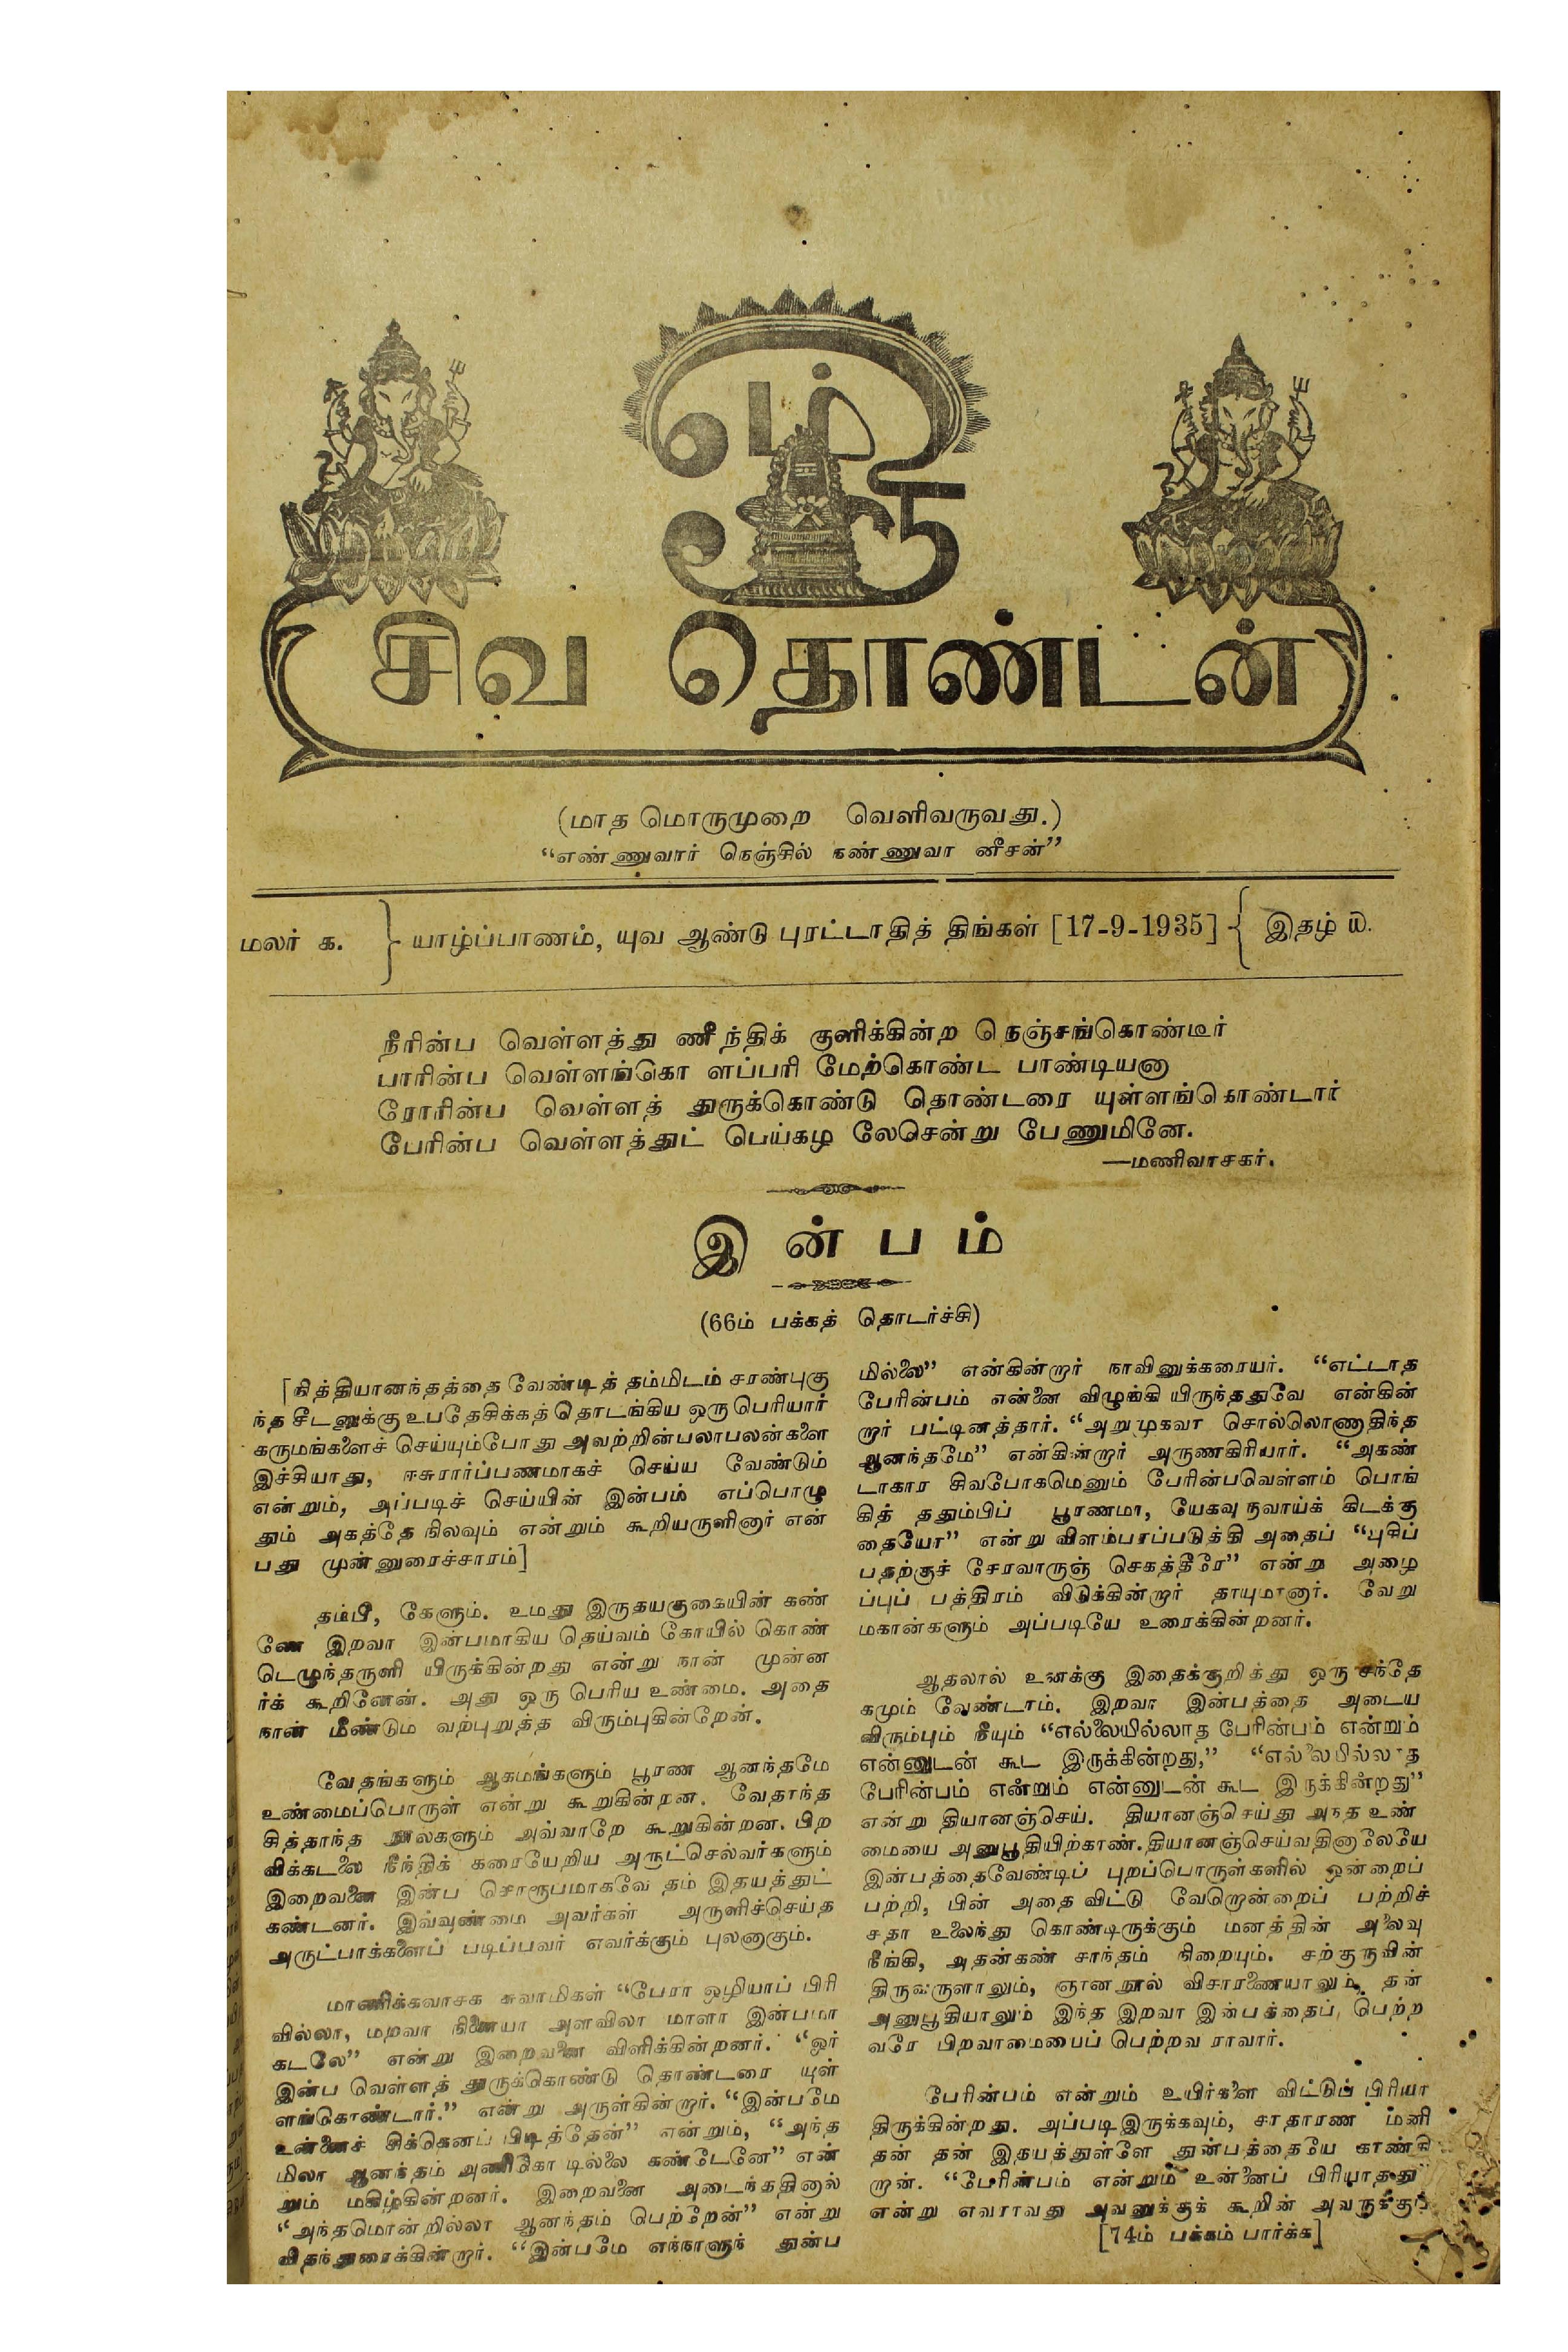 ஓம்
சிவ தொண்டன்
(மாத மொருமுறை வெளிவருவது.)
“எண்ணுவார் நெஞ்சில் நண்ணுவா னீசன்”
மலர் க. } யாழ்ப்பாணம், யுவ ஆண்டு புரட்டாதித் திங்கள் [17-9-1935] { இதழ் ௰.
நீரின்ப வெள்ளத்து ணீந்திக் குளிக்கின்ற நெஞ்சங்கொண்டீர்
பாரின்ப வெள்ளங்கொ ளப்பரி மேற்கொண்ட பாண்டியனா
ரோரின்ப வெள்ளத் துருக்கொண்டு தொண்டரை யுள்ளங்கொண்டார்
பேரின்ப வெள்ளத்துட் பெய்கழ லேசென்று பேணுமினே.
—மணிவாசகர்.
இன்பம்
(66ம் பக்கத் தொடர்ச்சி)
[நித்தியானந்தத்தை வேண்டித் தம்மிடம் சரண்புகு
ந்த சீடனுக்கு உபதேசிக்கத் தொடங்கிய ஒரு பெரியார்
கருமங்களைச் செய்யும்போது அவற்றின்பலாபலன்களை
இச்சியாது, ஈசுரார்ப்பணமாகச் செய்ய வேண்டும்
என்றும், அப்படிச் செய்யின் இன்பம் எப்பொழு
தும் அகத்தே நிலவும் என்றும் கூறியருளினார் என்
பது முன்னுரைச்சாரம்]
தம்பீ, கேளும். உமது இருதயகுகையின் கண்
ணே இறவா இன்பமாகிய தெய்வம் கோயில் கொண்
டெழுந்தருளி யிருக்கின்றது என்று நான் முன்ன
ர்க் கூறினேன். அது ஒரு பெரிய உண்மை. அதை
நான் மீண்டும் வற்புறுத்த விரும்புகின்றேன்.
வேதங்களும் ஆகமங்களும் பூரண ஆனந்தமே
உண்மைப்பொருள் என்று கூறுகின்றன. வேதாந்த
சித்தாந்த நூல்களும் அவ்வாறே கூறுகின்றன. பிற
விக்கடலை நீந்திக் கரையேறிய அருட்செல்வர்களும்
இறைவனை இன்ப சொரூபமாகவே தம் இதயத்துட்
கண்டனர். இவ்வுண்மை அவர்கள் அருளிச்செய்த
அருட்பாக்களைப் படிப்பவர் எவர்க்கும் புலனாகும்.
மாணிக்கவாசக சுவாமிகள் “பேரா ஒழியாப் பிரி
வில்லா, மறவா நினையா அளவிலா மாளா இன்பமா
கடலே” என்று இறைவனை விளிக்கின்றனர். “ஓர்
இன்ப வெள்ளத் துருக்கொண்டு தொண்டரை யுள்
ளங்கொண்டார்.” என்று அருள்கின்றார். “இன்பமே
உன்னைச் சிக்கெனப் பிடித்தேன்” என்றும், “அந்த
மிலா ஆனந்தம் அணிகொ டில்லை கண்டேனே” என்
றும் மகிழ்கின்றனர். இறைவனை அடைந்ததினால்
“அந்தமொன்றில்லா ஆனந்தம் பெற்றேன்” என்று
விதந்துரைக்கின்றார். “இன்பமே எந்நாளுந் துன்ப
மில்லை” என்கின்றார் நாவினுக்கரையர். “எட்டாத
பேரின்பம் என்னை விழுங்கி யிருந்ததுவே என்கின்
றார் பட்டினத்தார். “அறுமுகவா சொல்லொணாதிந்த
ஆனந்தமே” என்கின்றார் அருணகிரியார். “அகண்
டாகார சிவபோகமெனும் பேரின்பவெள்ளம் பொங்
கித் ததும்பிப் பூரணமா, யேகவுருவாய்க் கிடக்கு
தையோ” என்று விளம்பரப்படுத்தி அதைப் “புசிப்
பதற்குச் சேரவாருஞ் செகத்தீரே” என்று அழை
ப்புப் பத்திரம் விடுக்கின்றார் தாயுமானார். வேறு
மகான்களும் அப்படியே உரைக்கின்றனர்.
ஆதலால் உனக்கு இதைக்குறித்து ஒரு சந்தே
கமும் வேண்டாம். இறவா இன்பத்தை அடைய
விரும்பும் நீயும் “எல்லையில்லாத பேரின்பம் என்றும்
என்னுடன் கூட இருக்கின்றது,” “எல்லையில்லாத
பேரின்பம் என்றும் என்னுடன் கூட இருக்கின்றது”
என்று தியானஞ்செய். தியானஞ்செய்து அந்த உண்
மையை அனுபூதியிற்காண். தியானஞ்செய்வதினாலேயே
இன்பத்தைவேண்டிப் புறப்பொருள்களில் ஒன்றைப்
பற்றி, பின் அதை விட்டு வேறொன்றைப் பற்றிச்
சதா உலைந்து கொண்டிருக்கும் மனத்தின் அலைவு
நீங்கி, அதன்கண் சாந்தம் நிறையும். சற்குருவின்
திருவருளாலும், ஞானநூல் விசாரணையாலும், தன்
அனுபூதியாலும் இந்த இறவா இன்பத்தைப் பெற்ற
வரே பிறவாமையைப் பெற்றவ ராவார்.
பேரின்பம் என்றும் உயிர்களை விட்டுப் பிரியா
திருக்கின்றது. அப்படிஇருக்கவும், சாதாரண மனி
தன் தன் இதயத்துள்ளே துன்பத்தையே காண்கி
றான். “பேரின்பம் என்றும் உன்னைப் பிரியாதது”
என்று எவராவது அவனுக்குக் கூறின் அவருக்குப்
[74ம் பக்கம் பார்க்க]